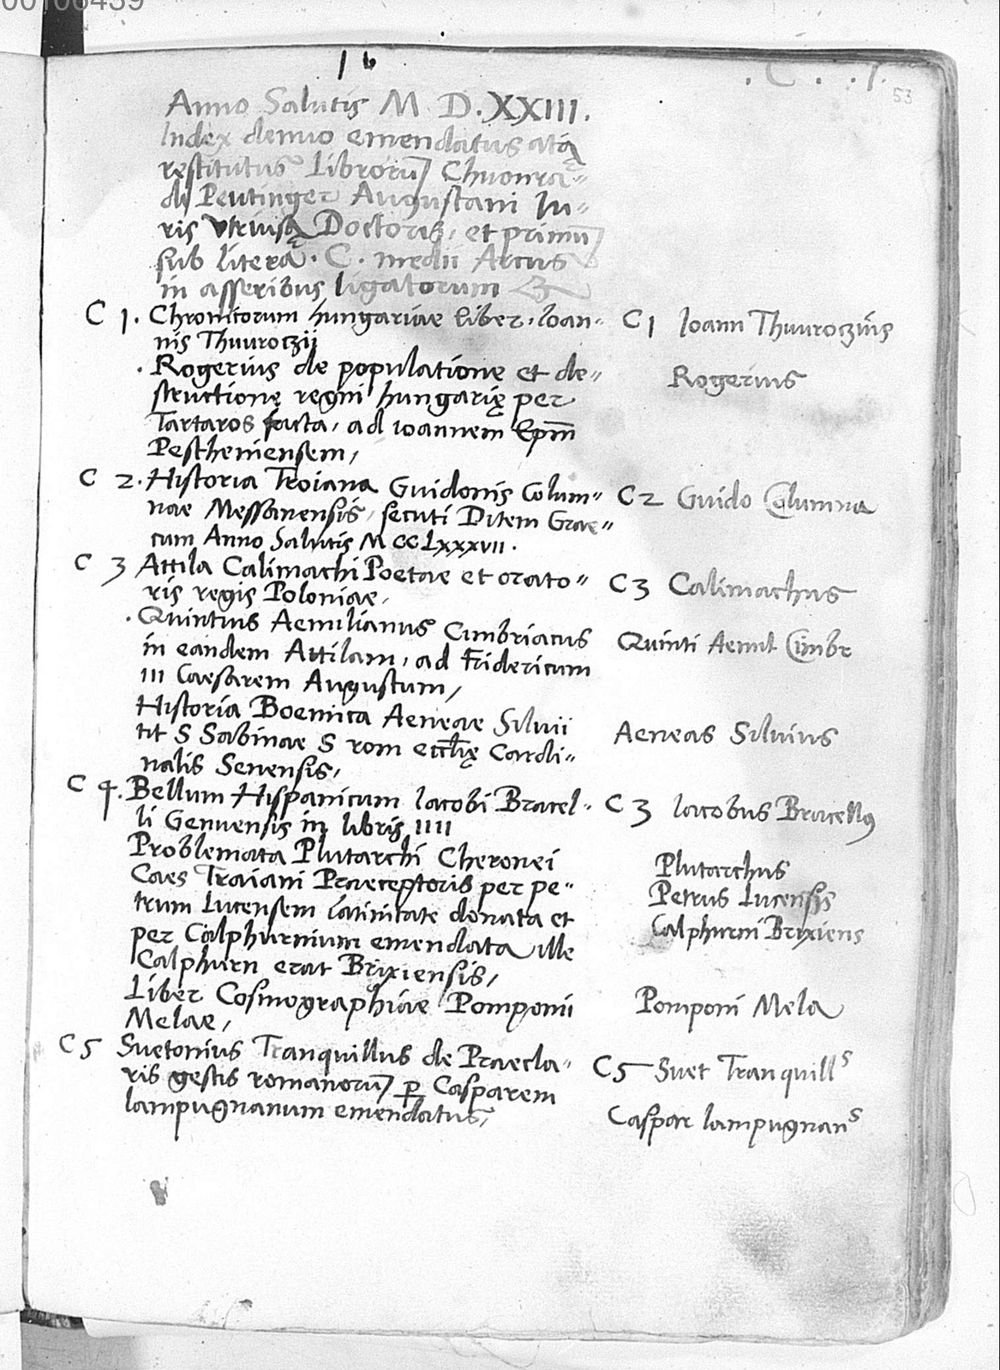 00106439
16
. C . . 1.
53
Anno Salutis M D. XXIII.
Index denuo emendatus atq
restitutus Librorū Chuonra-
di Peutinger Augustani Iu-
ris vtriusq Doctoris, et primū
sub litera . C . medii Arcus
in asseribus ligatorum
C 1. Chronicorum hungariae liber. Ioan-
nis Thuuroczii
. Rogerius de populatione et de-
structione regni hungarię per
Tartaros facta, ad ioannem Epm̄
Pestheniensem,
C 2. Historia Troiana Guidonis Colum-
nae Messanensis, secuti Ditem Grae-
cum Anno Salutis M CC Lxxxvii.
C 3 Attila Calimachi Poetae et orato-
ris regis Poloniae,
. Quintius Aemilianus Cimbriacus
in eandem Attilam, ad Fridericum
III Caesarem Augustum,
Historia Boemica Aeneae Siluii
tit S Sabinae S rom eccl̄ię Cardi-
nalis Senensis,
C 4. Bellum Hispanicum Iacobi Bracel-
li Genuensis in libris IIII
Problemata Plutarchi Cheronei
Caes Traiani Praeceptoris per pe-
trum Lucensem latinitate donata et
per Calphurnium emendata ille
Calphurn erat Brixiensis,
Liber Cosmographiae Pomponii
Melae,
C 5 Suetonius Tranquillus de Praecla-
ris gestis romanorū ꝑ Casparem
lampugnanum emendatus,
C 1 Ioann Thuuroczius
Rogerius
C 2 Guido Columna
C 3 Calimachus
Quinti Aemil Cimbr
Aeneas Siluius
C 3 Iacobus Bracellus
Plutarchus
Petrus Lucensis
Calphurni Brixiens
Pomponi Mela
C 5 Suet Tranquills
Caspar lampugnans